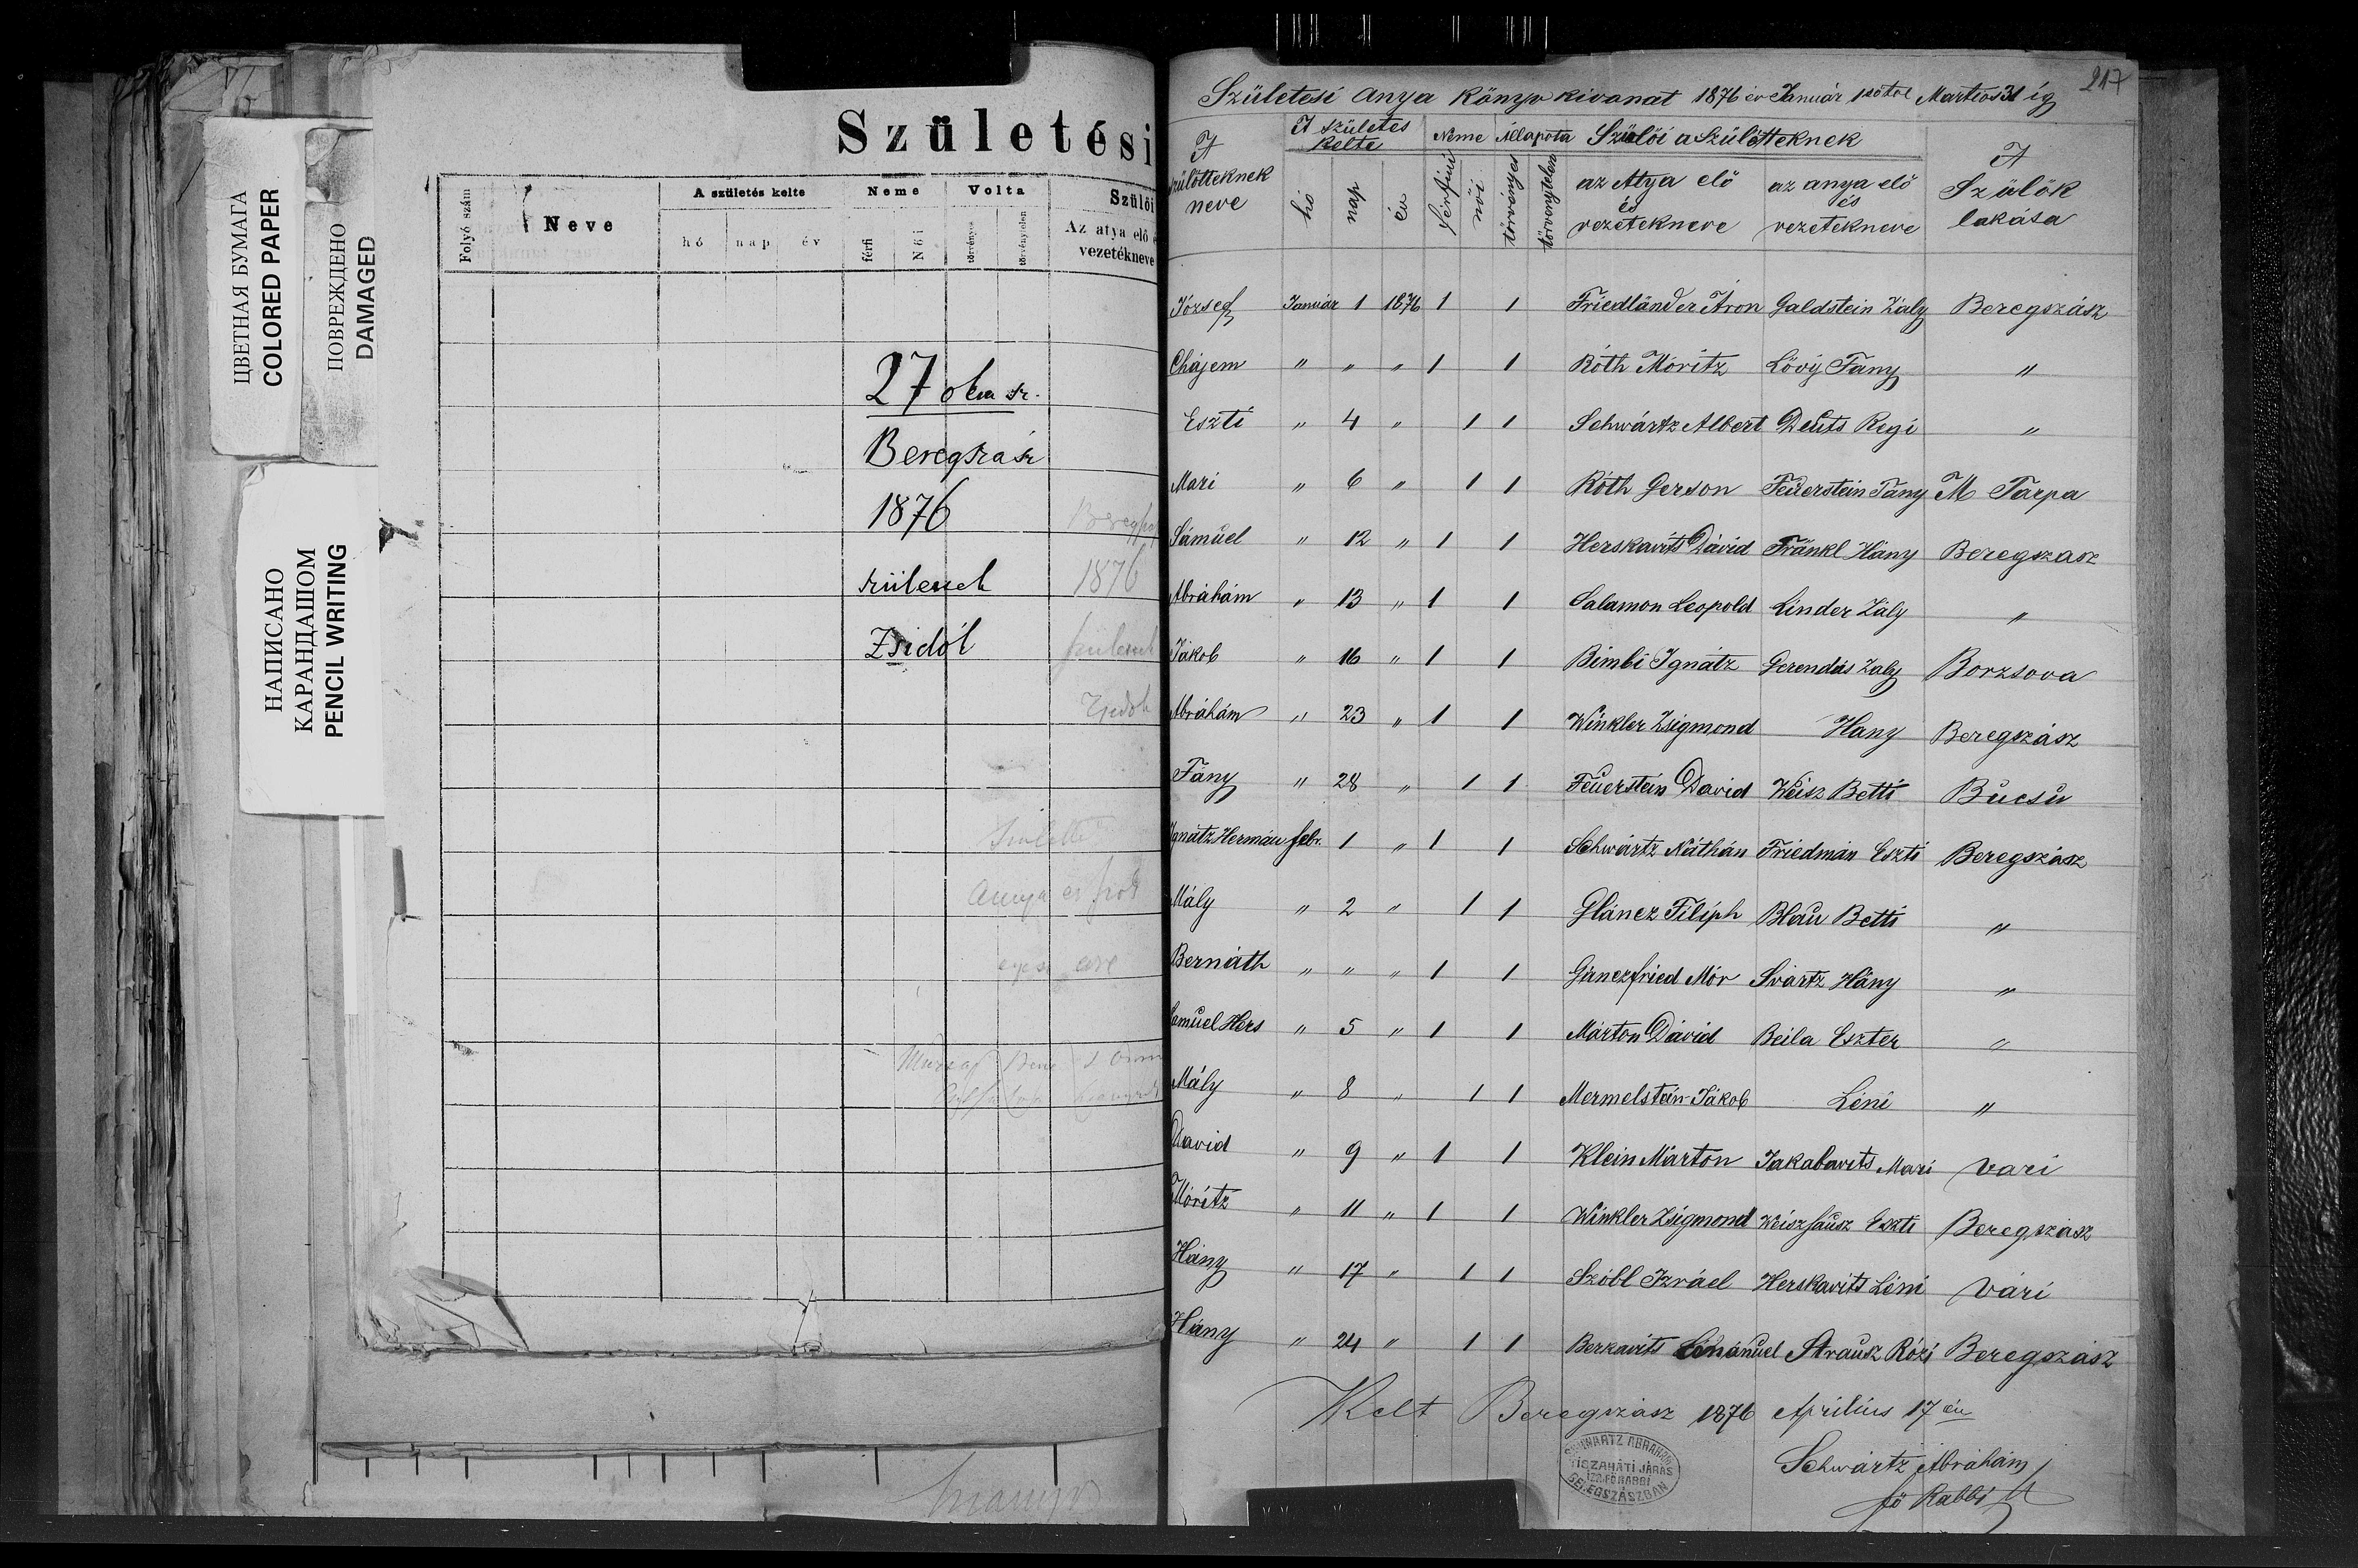 ЦВЕТНАЯ БУМАГА
COLORED PAPER
ПОВРЕЖДЕНО
DAMAGED
НАПИСАНО
КАРАНДАШОМ
PENCIL WRITING
Születési
Folyó szám
Neve
A születés kelte
hó nap év
Neme
férfi Női
Volta
törvényes törvénytelen
Szülői
Az atya elő é
vezetékneve
27
Beregszász
1876
születések
Zsidók
1876
születések
Zsidók
Anya
217
Születesi Anya Könyv kivonat 1876 év Január 1ső től Martios 31 ig
A születes kelte Neme Állapota Szülői a Szülötteknek
A szülötteknek neve
hó nap év férfiúi női törvenyes törvenytelen
az Atya elő és vezetekneve
az anya elő és vezetekneve
A Szülők lakása
József Január 1 1876 1 1 Friedländer Áron Galdstein Zály Beregszász
Chájem " " " 1 1 Róth Móritz Lövÿ Fány "
Eszti " 4 " 1 1 Schwártz Albert Deuts Regi "
Mari " 6 " 1 1 Róth Gerson Feüerstein Fány M Tarpa
Sámuel " 12 " 1 1 Herskavits Dávid Fränkl Hány Beregszasz
Abráhám " 13 " 1 1 Salamon Leopold Linder Zály "
Jákob " 16 " 1 1 Bimbi Ignátz Gerendás Zaly Borzsova
Abrahám " 23 " 1 1 Winkler Zsigmond Hany Beregszász
Fány " 28 " 1 1 Feüerstein David Weisz Betti Bucsu
Ignátz Hermán febr. 1 " 1 1 Schwártz Náthán Friedmán Eszti Beregszász
Mály " 2 " 1 1 Gláncz Filiph Blau Betti "
Bernáth " " " 1 1 Gánczfried Mór Svártz Hány "
Samuel Hers " 5 " 1 1 Márton Dávid Beila Eszter "
Mály " 8 " 1 1 Mermelstein Jákob Léni "
David " 9 " 1 1 Klein Márton Jakabavits Mari vari
Móritz " 11 " 1 1 Winkler Zsigmond Weiszhausz Eszti Beregszász
Hány " 17 " 1 1 Szóbl Izráel Herskavits Léni Vári
Hány " 24 " 1 1 Berkavits Emánuel Strausz Rózi Beregszász
Kelt Beregszász 1876 Aprilius 17 én
SCHWARTZ ABRAHÁM
TISZAHÁTI JÁRÁS
IZR. FŐRABBI
BEREGSZÁSZBAN
Schwártz Abrahám
fő Rabbi